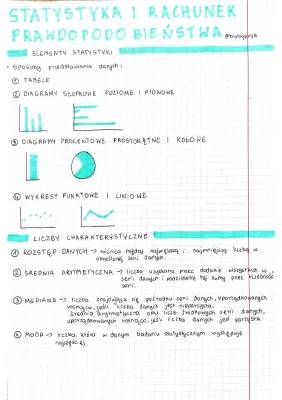 STATYSTYKA I RACHUNEK
PRAWDOPODOBIEŃSTWA
ELEMENTY STATYSTYKI
• Sposoby przedstawiania danych:
① TABELE
② DIAGRAMY SŁUPKOWE POZIOME I PIONOWE
③ DIAGRAMY PROCENTOWE PROSTOKĄTNE I KOŁOWE
④ WYKRESY PUNKTOWE I LINIOWE
LICZBY CHARAKTERYSTYCZNE
① ROZSTĘP DANYCH → różnica między największą i najmniejszą liczbą w
określonej serii danych.
② ŚREDNIA ARYTMETYCZNA → liczba uzyskana przez dodanie wszystkich w
serii danych i podzielenie tej sumy przez liczebność
serii.
③ MEDIANA → liczba znajdująca się pośrodku serii danych, uporządkowanych
rosnąco, jeśli liczba danych jest nieparzysta.
Średnia arytmetyczna dwu liczb środkowych serii danych,
uporządkowanych rosnąco, jeśli liczba danych jest parzysta
④ MODA → liczba, która w danym badaniu statystycznym występuje
najczęściej.